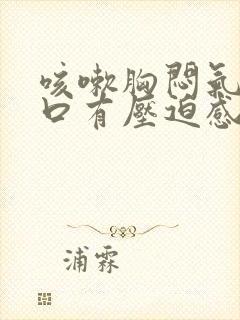 咳嗽胸悶氣
口有壓迫感
浦霖